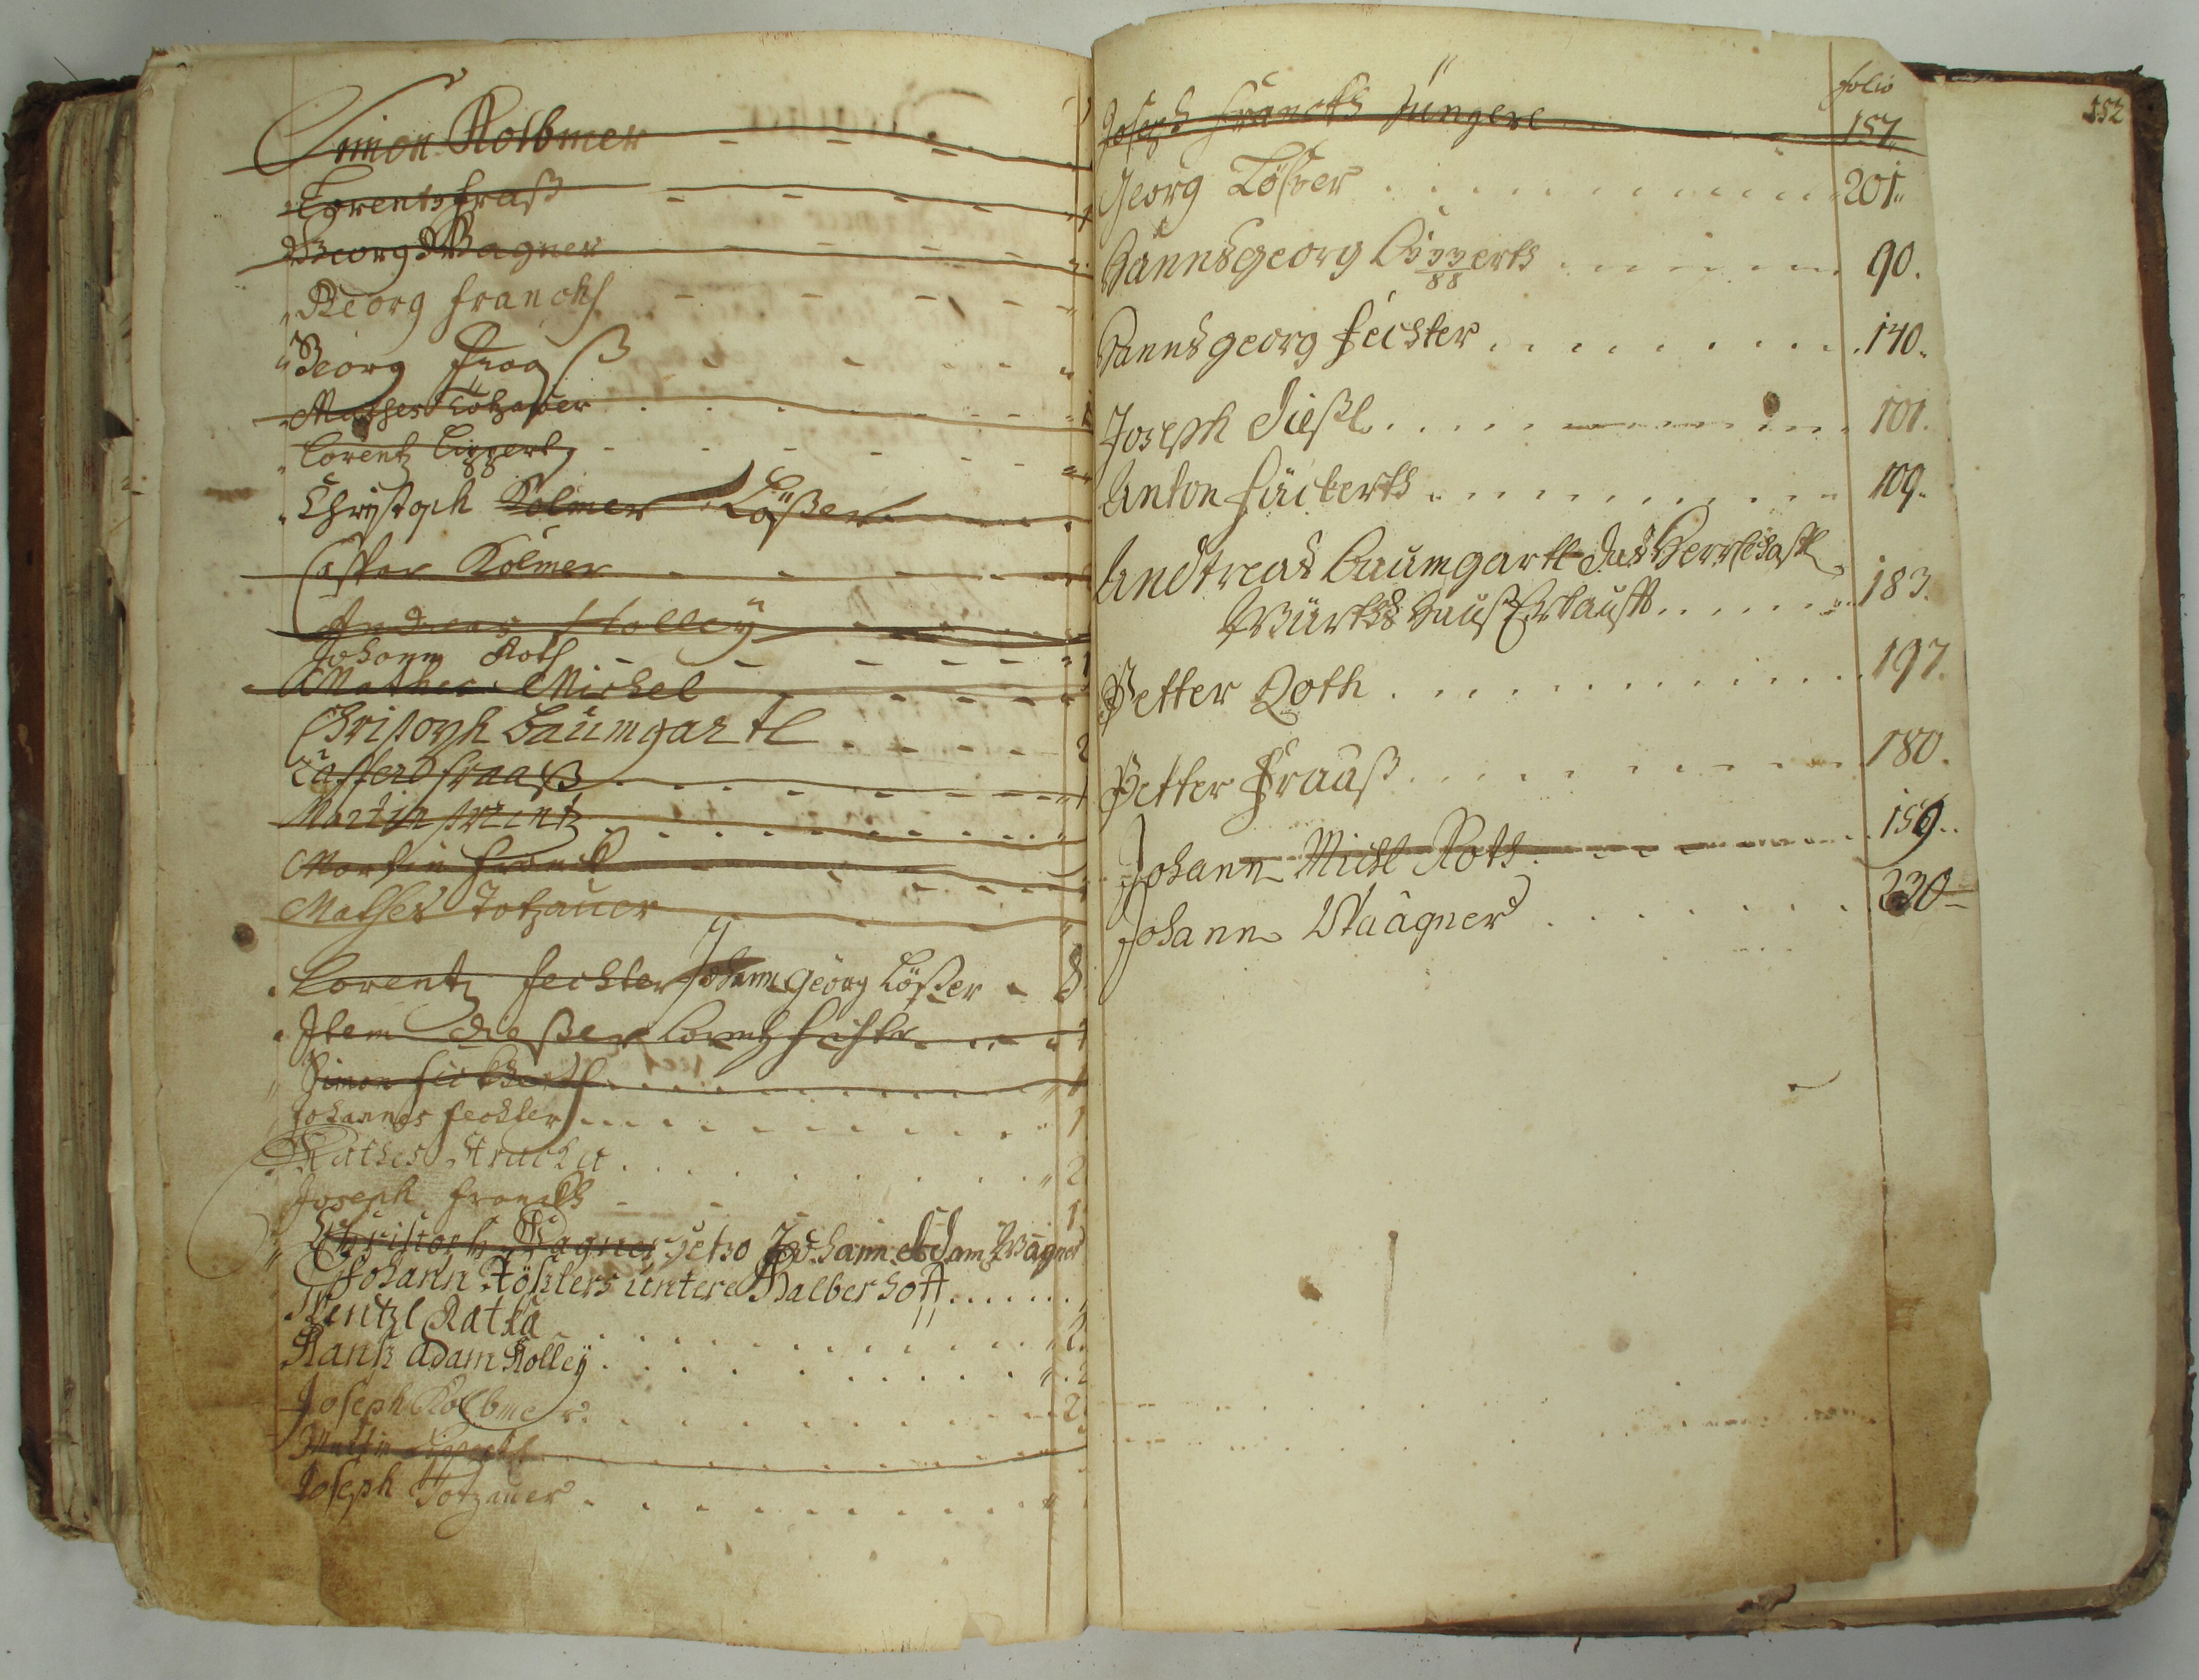 Simon Kolbmer
Lorentz fraß
Georg Wagner
Georg franckh
Georg fraaß
Mathes Totzauer
Lorentz Lippert
Christoph Kolmer Lößer
Casper Kolmer
Andreas Kolleÿ
Johann Roth 1
Mathes Michel
Christoph Baumgartl 2
Casperd fraaß
Martin printz
Martin franck
Mathes Totzauer
Lorentz fechter Johann Georg Lößer 8
Item dießer Lorentz fechter
Simon
Johannes fechter 1
Mathes 2
Joseph franckh 1
Christoph Wagner jetzo Johann Adam Wagner
Johann Rößlers untere Halber Hoff
Wentzl Ratka 2
Hanß adam Kolleÿ 2
Joseph Kolbmer 2
Martin Lippert
Joseph Totzauer
folio
Joseph franckh Jüngere 157
Georg Lößer 201
Hannß Georg Lipperth 90.
Hannß georg fechter 140.
Joseph dießl 101.
Anton fückerth 109.
Andtreas Baumgartl das Herrschaftl
Würths Hauß Erkaufft 183.
Petter Roth 197.
Petter Frauß 180.
Johann Michl Roth 159.
Johann Waagner 230
152